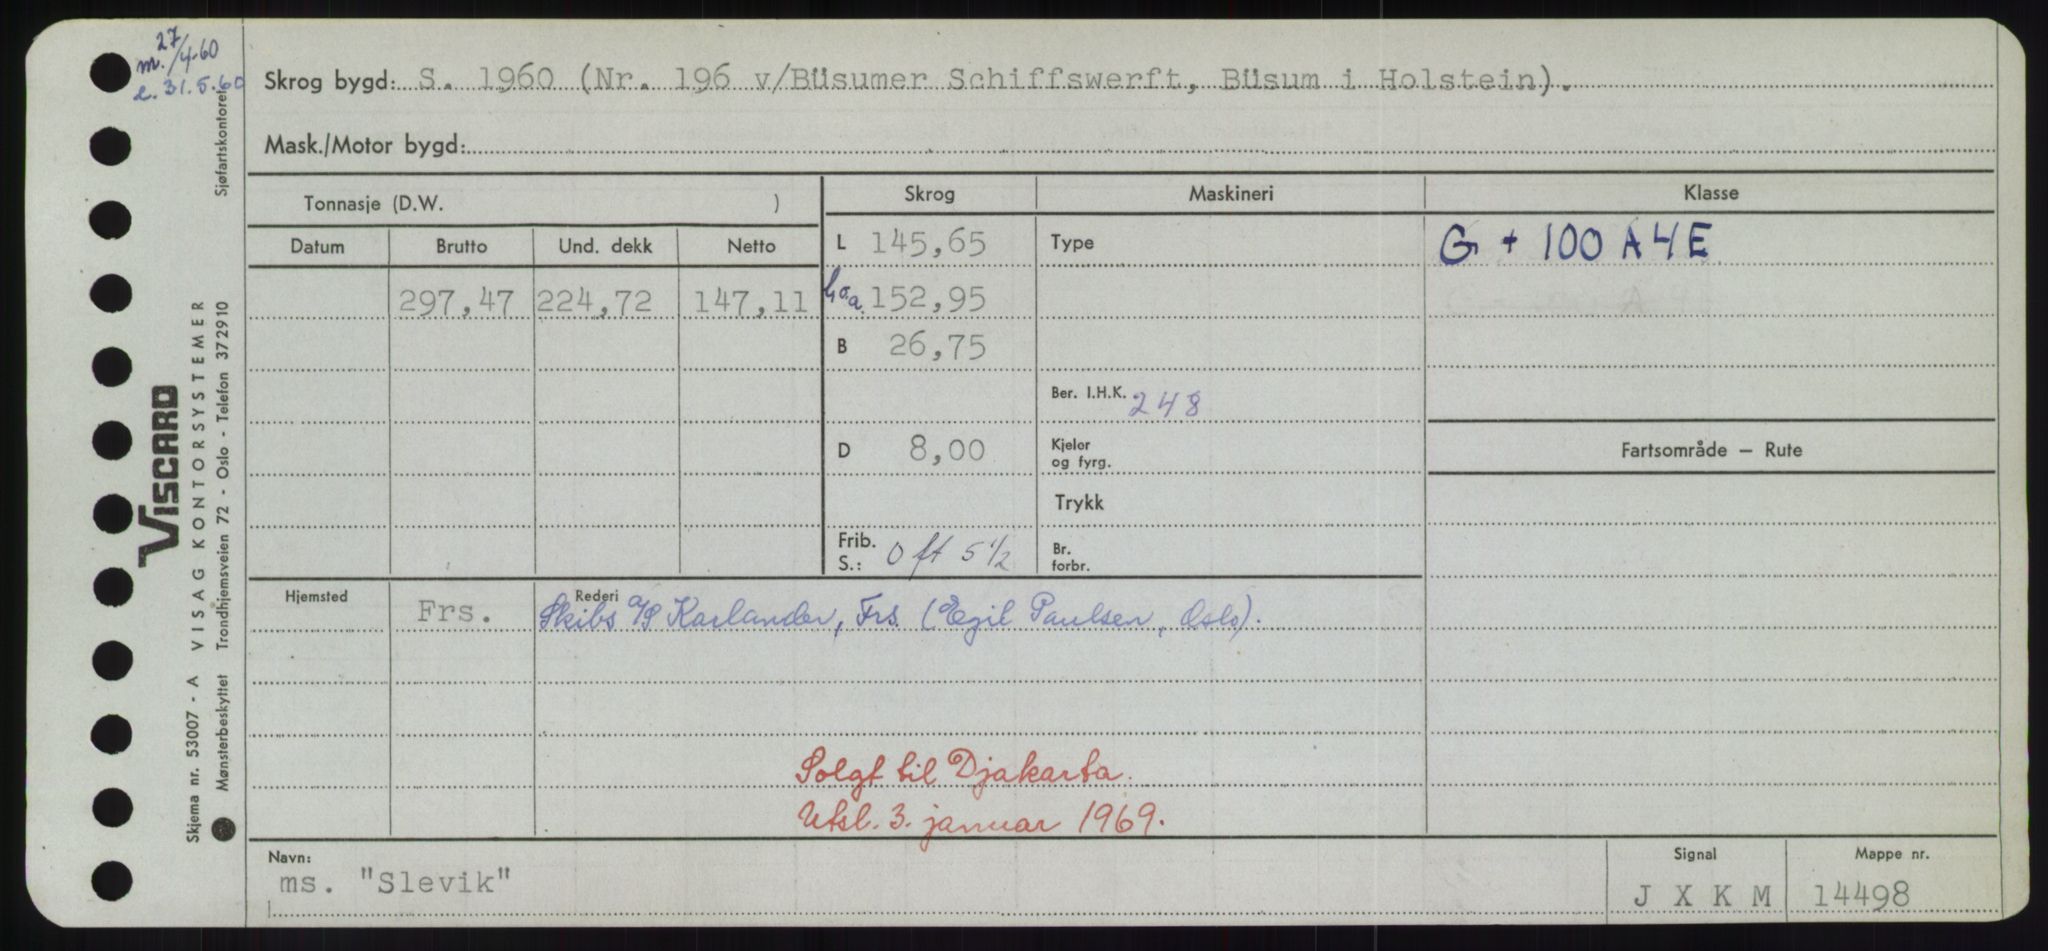 m. 27/4-60
e. 31.5.60
Skrog bygd: S. 1960 (Nr. 196 v/Büsumer Schiffswerft, Büsum i Holstein).
Mask./Motor bygd:
Tonnasje (D.W. )
Skrog
Maskineri
Klasse
Datum
Brutto
Und. dekk
Netto
L 145,65
Type
G + 100 A 4 E
297,47 224,72 147,11
L o.a. 152,95
B 26,75
Ber. I.H.K. 248
D 8,00
Kjeler
og fyrg.
Fartsområde — Rute
Trykk
Frib.
S.: 0 ft 5 1/2
Br.
forbr.
Hjemsted
Frs.
Rederi
Skibs A/S Karlander, Frs. (Egil Paulsen, Oslo).
Solgt til Djakarta.
Utsl. 3. januar 1969.
Navn:
ms. "Slevik"
Signal
J X K M
Mappe nr.
14498
VISCARD
Skjema nr. 53007 - A VISAG KONTORSYSTEMER
Mønsterbeskyttet Trondhjemsveien 72 - Oslo - Telefon 372910 Sjøfartskontoret